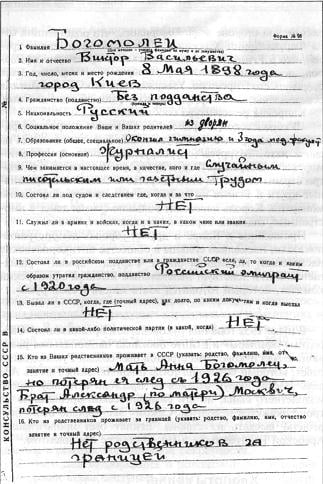 Форма № 96
1. Фамилия Богомолец
2. Имя и отчество Виктор Васильевич
3. Год, число, месяц и место рождения 8 Мая 1898 года
город Киев
4. Гражданство (подданство) Без подданства
5. Национальность Русский
6. Социальное положение Ваше и Ваших родителей из дворян
7. Образование (общее, специальное) Окончил гимназию и 3 года мед. факульт
8. Профессия (основная) Журналист
9. Чем занимается в настоящее время, в качестве, кого и где Случайным
писательским или газетным трудом
10. Состояли ли под судом и следствием где, когда и за что
НЕТ
11. Служил ли в армиях и войсках, когда и в каких, в каком чине или звании
НЕТ
12. Состояли ли в российском подданстве или в гражданстве СССР если, да, то когда и каким
образом утратил гражданство, подданство Российский эмигрант
с 1920 года
13. Бывал ли в СССР, когда, где (точный адрес), как долго, по каким документам и когда выехал
НЕТ
14. Состоял ли в какой-либо политической партии (в какой, когда) НЕТ
15. Кто из Ваших родственников проживает в СССР (указать: родство, фамилию, имя, от-
занятие и точный адрес) Мать Анна Богомолец,
но потерян ея след съ 1926 года
Брат Александр (по матери) Москвич,
потерян след с 1926 года
16. Кто из родственников проживает за границей (указать: родство, фамилию, имя, отчество
занятие и точный адрес)
Нет родственников за
границей
КОНСУЛЬСТВО СССР В
№